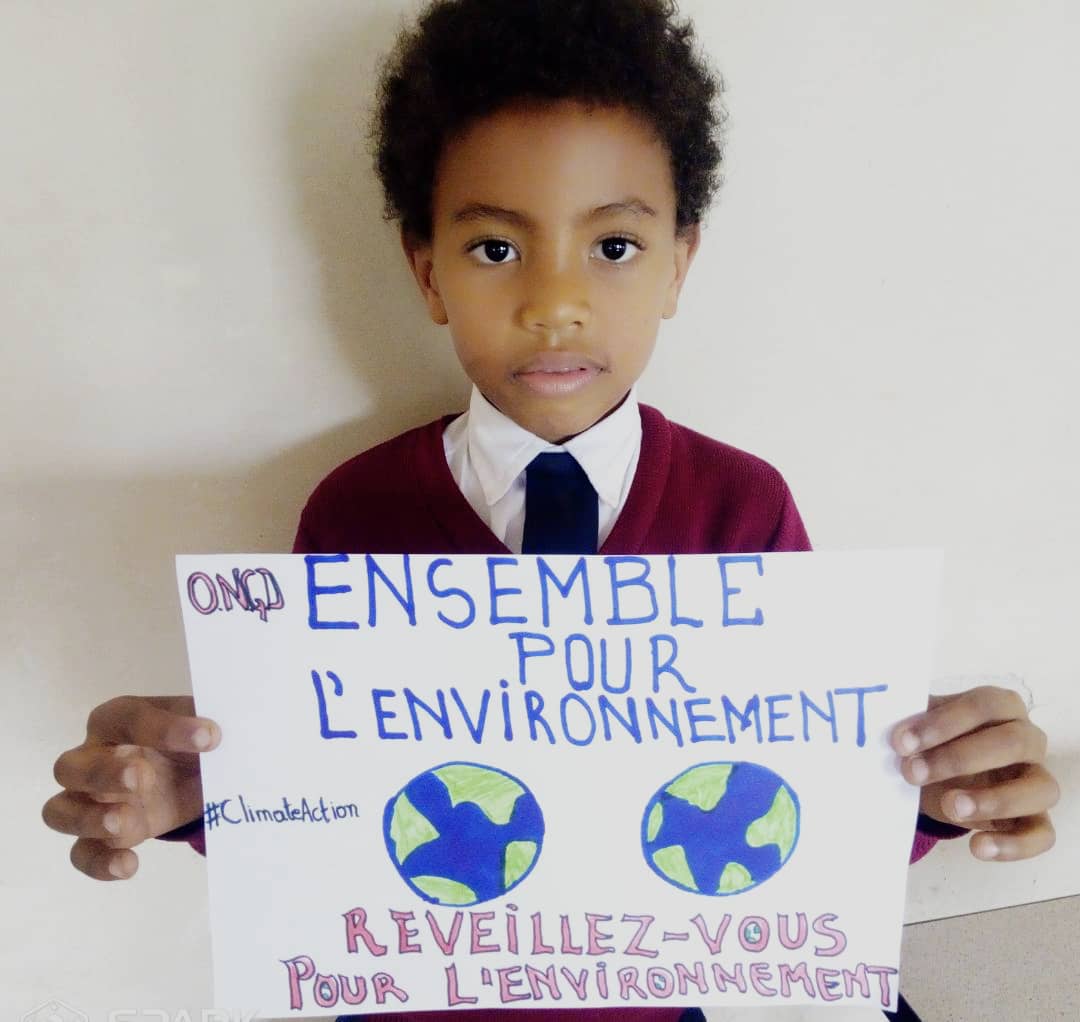 O.N.G.D ENSEMBLE
POUR
L'ENViRONNEMENT
#ClimateAction
REVEiLLEZ-VOUS
POUR L'ENViRONNEMENT
SPARK